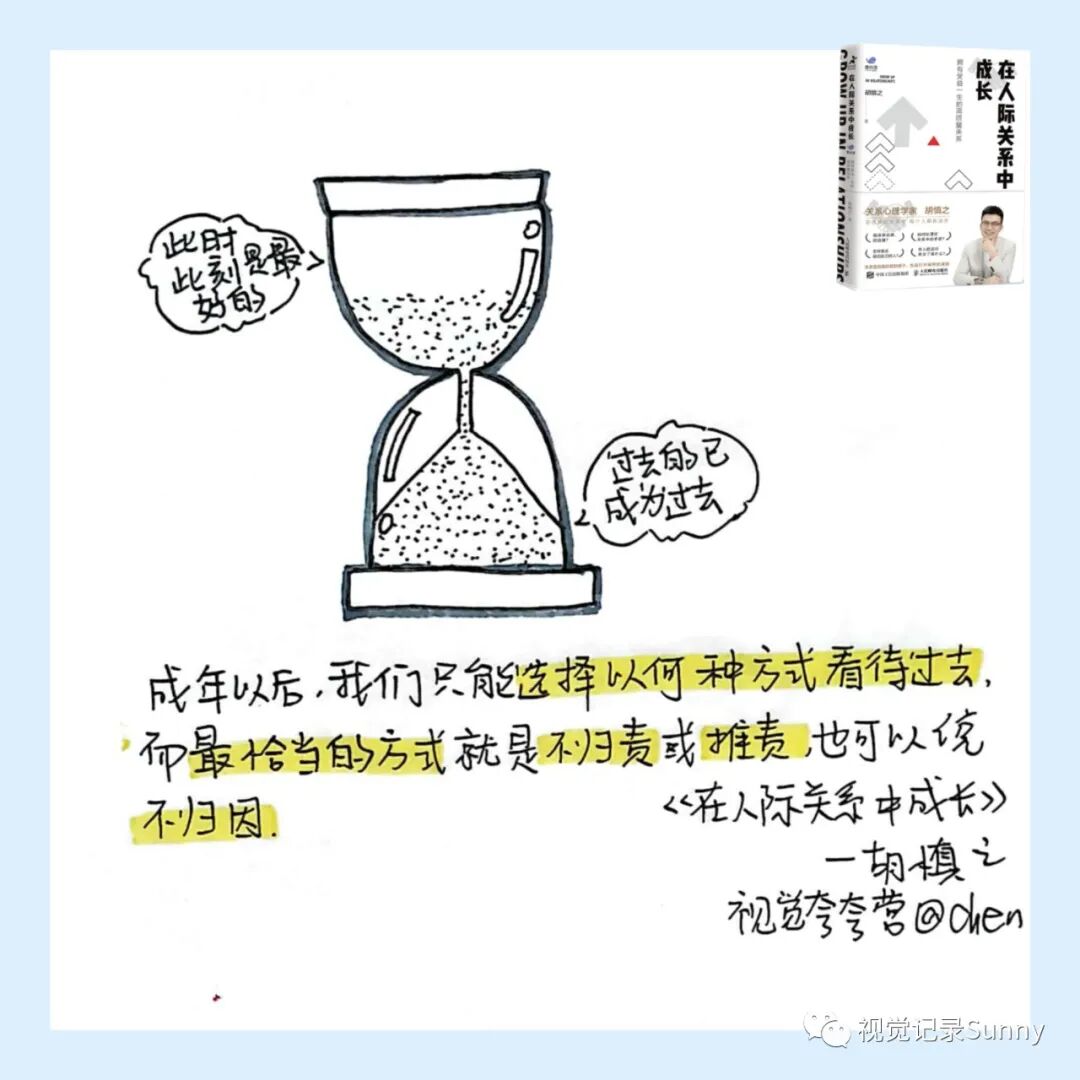 在人际关系中
成长
拥有受益一生的高质量关系
胡慎之
在人际关系中成长
GROW UP IN RELATIONSHIPS
关系心理学家 胡慎之
此时
此刻是最
好的
过去的已
成为过去
成年以后，我们只能选择以何种方式看待过去，
而最恰当的方式就是不归责或推责，也可以统
不归因.
《在人际关系中成长》
—胡慎之
视觉夸夸营@chen
视觉记录Sunny